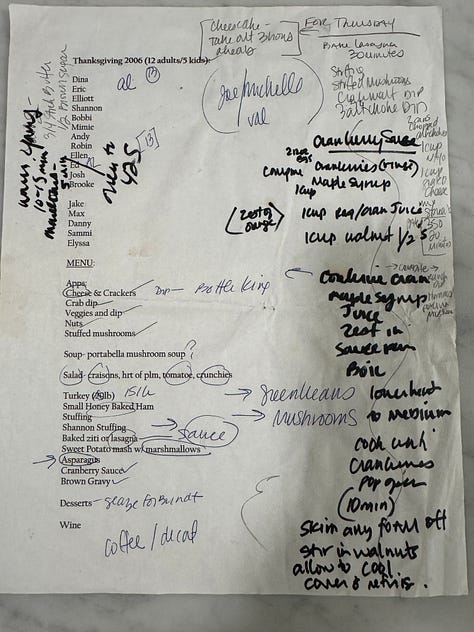 cheesecake -
take out 3 hours
ahead
FOR THURSDAY
Thanksgiving 2006 (12 adults/5 kids):
al
Dina
Eric
Elliott
Shannon
Bobbi
Mimic
Andy
Robin
Ellen
Ed
Josh
Brooke
Jake
Max
Danny
Sammi
Elyssa
Joe/michelle
val
3/4 stick butter
1/2 Brown sugar
10-15 min
oven to
425
[13]
30 minutes
Stuffing
Stuffed mushrooms
Crabmeat Dip
artichoke DIP
Cranberry Sauce
Cranberries (rinse)
combine
Maple Syrup
1 cup
(zest of
orange)
1 cup
1 cup walnut 1/2's
Combine cran
Maple Syrup
Juice
Zest in
Sauce pan
Boil
lower heat
to medium
cook until
cranberries
pop open
(10 min)
skim any foam off
stir in walnuts
allow to cool
cover & refrig.
MENU:
Apps:
Cheese & Crackers
Dip - Bottle King
Crab dip
Veggies and dip
Nuts
Stuffed mushrooms
Soup- portabella mushroom soup ?
Salad- craisons, hrt of plm, tomatoe, crunchies
Turkey (20lb) 15lb
Small Honey Baked Ham
Stuffing
Shannon Stuffing
Baked ziti or lasagna
Sauce
Sweet Potato mash w/ marshmallows
Asparagus
Cranberry Sauce
Brown Gravy
→ greenbeans
→ Mushrooms
Desserts - glaze for Bundt
Wine
coffee/decaf